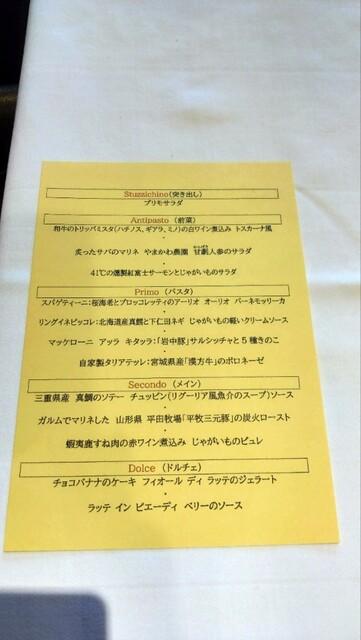 Stuzzichino(突き出し)
プリモサラダ
Antipasto (前菜)
和牛のトリッパミスタ(ハチノス、ギアラ、ミノ)の白ワイン煮込み トスカーナ風
・
炙ったサバのマリネ やまかわ農園 甘劇人参のサラダ
・
41℃の燻製紅富士サーモンとじゃがいものサラダ
Primo (パスタ)
スパゲティーニ:桜海老とブロッコレッティのアーリオ オーリオ パーネモッリーカ
・
リングイネピッコレ:北海道産真鱈と下仁田ネギ じゃがいもの軽いクリームソース
・
マッケローニ アッラ キタッラ:「岩中豚」サルシッチャと5種きのこ
・
自家製タリアテッレ:宮城県産「漢方牛」のボロネーゼ
Secondo (メイン)
三重県産 真鯛のソテー チュッピン(リグーリア風魚介のスープ)ソース
・
ガルムでマリネした 山形県 平田牧場「平牧三元豚」の炭火ロースト
・
蝦夷鹿すね肉の赤ワイン煮込み じゃがいものピュレ
Dolce (ドルチェ)
チョコバナナのケーキ フィオール ディ ラッテのジェラート
・
ラッテ イン ピエーディ ベリーのソース